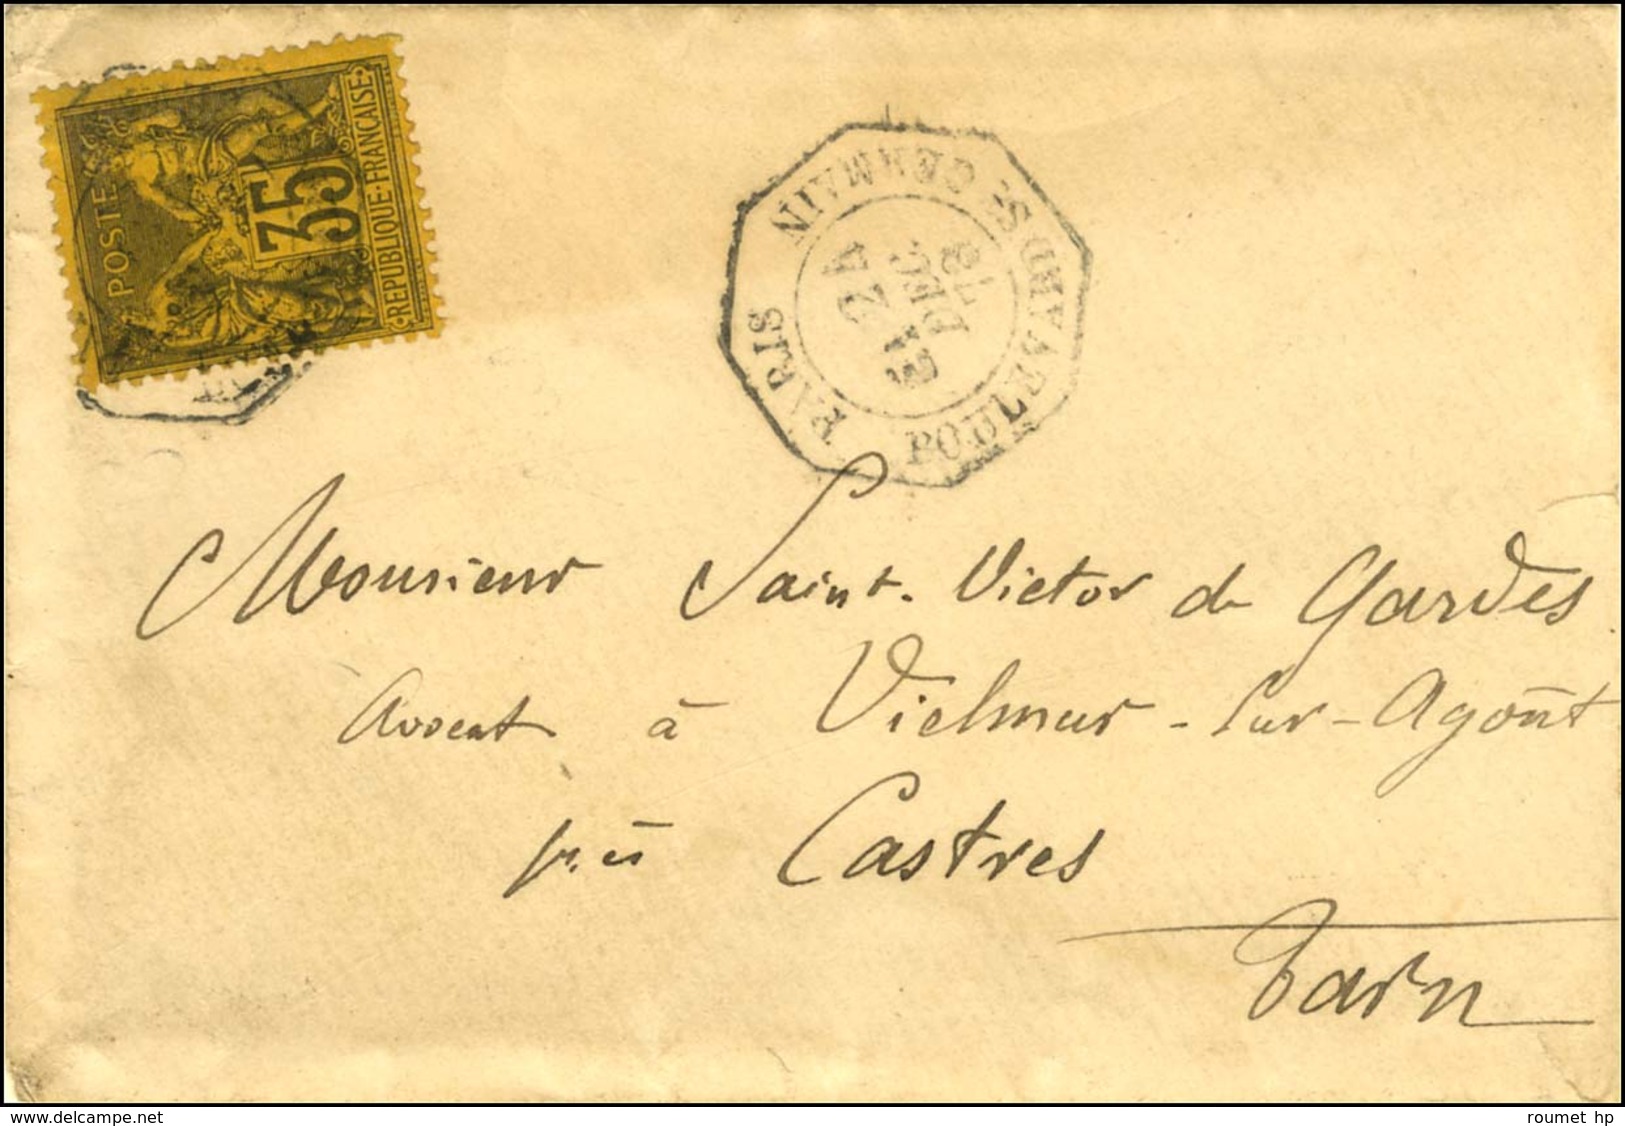 POSTE
35
REPUBLIQUE·FRANÇAISE
PARIS
POUL. LEVARD S. GERMAIN
DEC
Monsieur Saint-Victor de Gardes
Avocat à Vielmur-sur-Agoût
près Castres
Tarn
www.delcampe.net
roumet hp